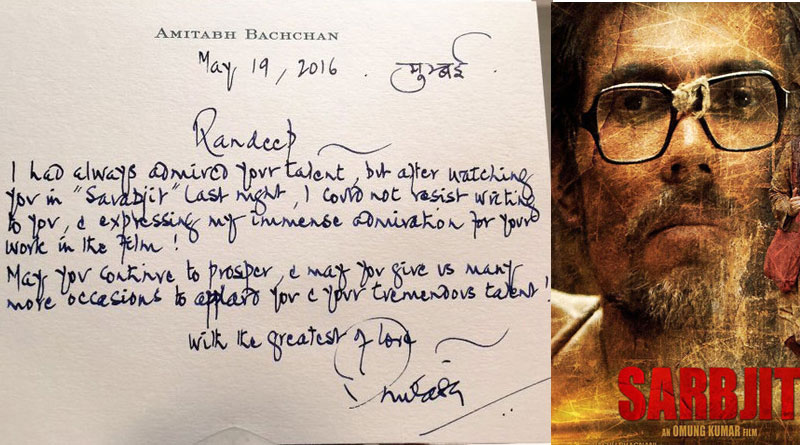 AMITABH BACHCHAN
May 19, 2016. मुम्बई
Randeep
I had always admired your talent, but after watching
you in "Sarabjit" last night, I could not resist writing
to you, & expressing my immense admiration for your
work in the film!
May you continue to prosper, & may you give us many
more occasions to applaud you & your tremendous talent!
with the greatest of love
SARBJIT
AN OMUNG KUMAR FILM